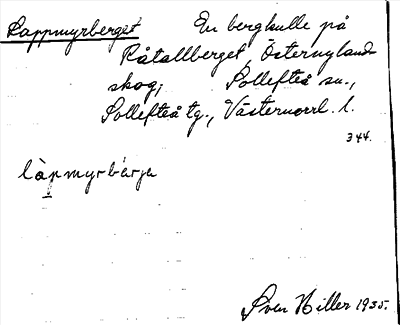 Lappmyrberget En bergkulle på
Råtallberget, Östernyland-
skog, Sollefteå sn.,
Sollefteå tg., Västernorrl. l.
344.
làpmyrbærje
Sven Hiller 1935.